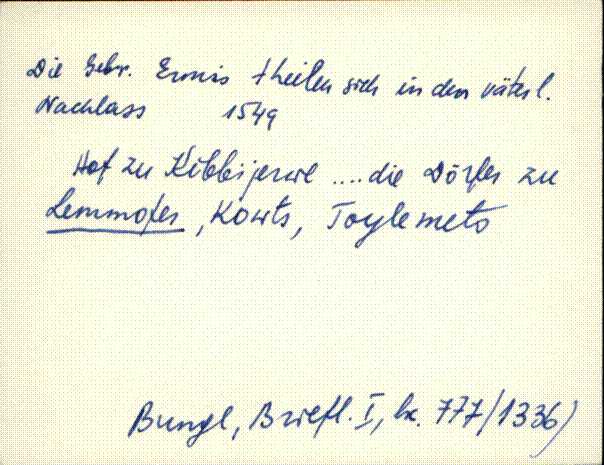 Die Gebr. Ermis theilen sich in den väterl.
Nachlass 1549
Hof zu Kibbijerwe .... die Dörfer zu
Lemmofer, Kowts, Toylemets
Bungl, Briefl. I, lk. 777/1336)